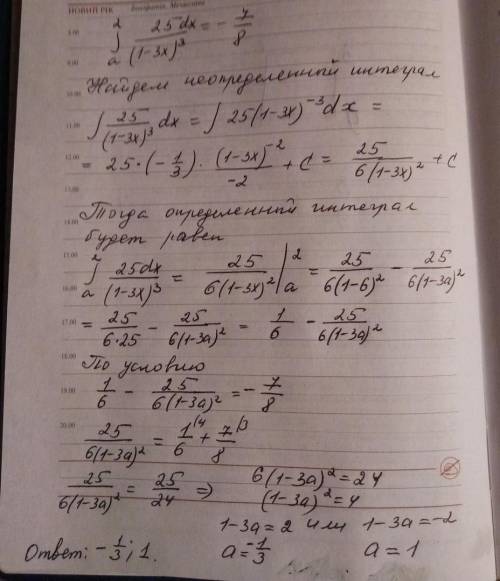 НОВИЙ РІК
8.00
9.00
10.00
11.00
12.00
13.00
14.00
15.00
16.00
17.00
18.00
19.00
20.00
∫_a^2 25dx/(1-3x)^3 = -7/8
Найдем неопределенный интеграл
∫ 25/(1-3x)^3 dx = ∫ 25(1-3x)^-3 dx =
= 25·(-1/3)·(1-3x)^-2/-2 + C = 25/6(1-3x)^2 + C
Тогда определенный интеграл
будет равен
∫_a^2 25dx/(1-3x)^3 = 25/6(1-3x)^2 |_a^2 = 25/6(1-6)^2 - 25/6(1-3a)^2
= 25/6·25 - 25/6(1-3a)^2 = 1/6 - 25/6(1-3a)^2
По условию
1/6 - 25/6(1-3a)^2 = -7/8
25/6(1-3a)^2 = 1/6 /4 + 7/8 /3
25/6(1-3a)^2 = 25/24 => 6(1-3a)^2 = 24
(1-3a)^2 = 4
1-3a = 2 или 1-3a = -2
a = -1/3 a = 1
Ответ: -1/3; 1.